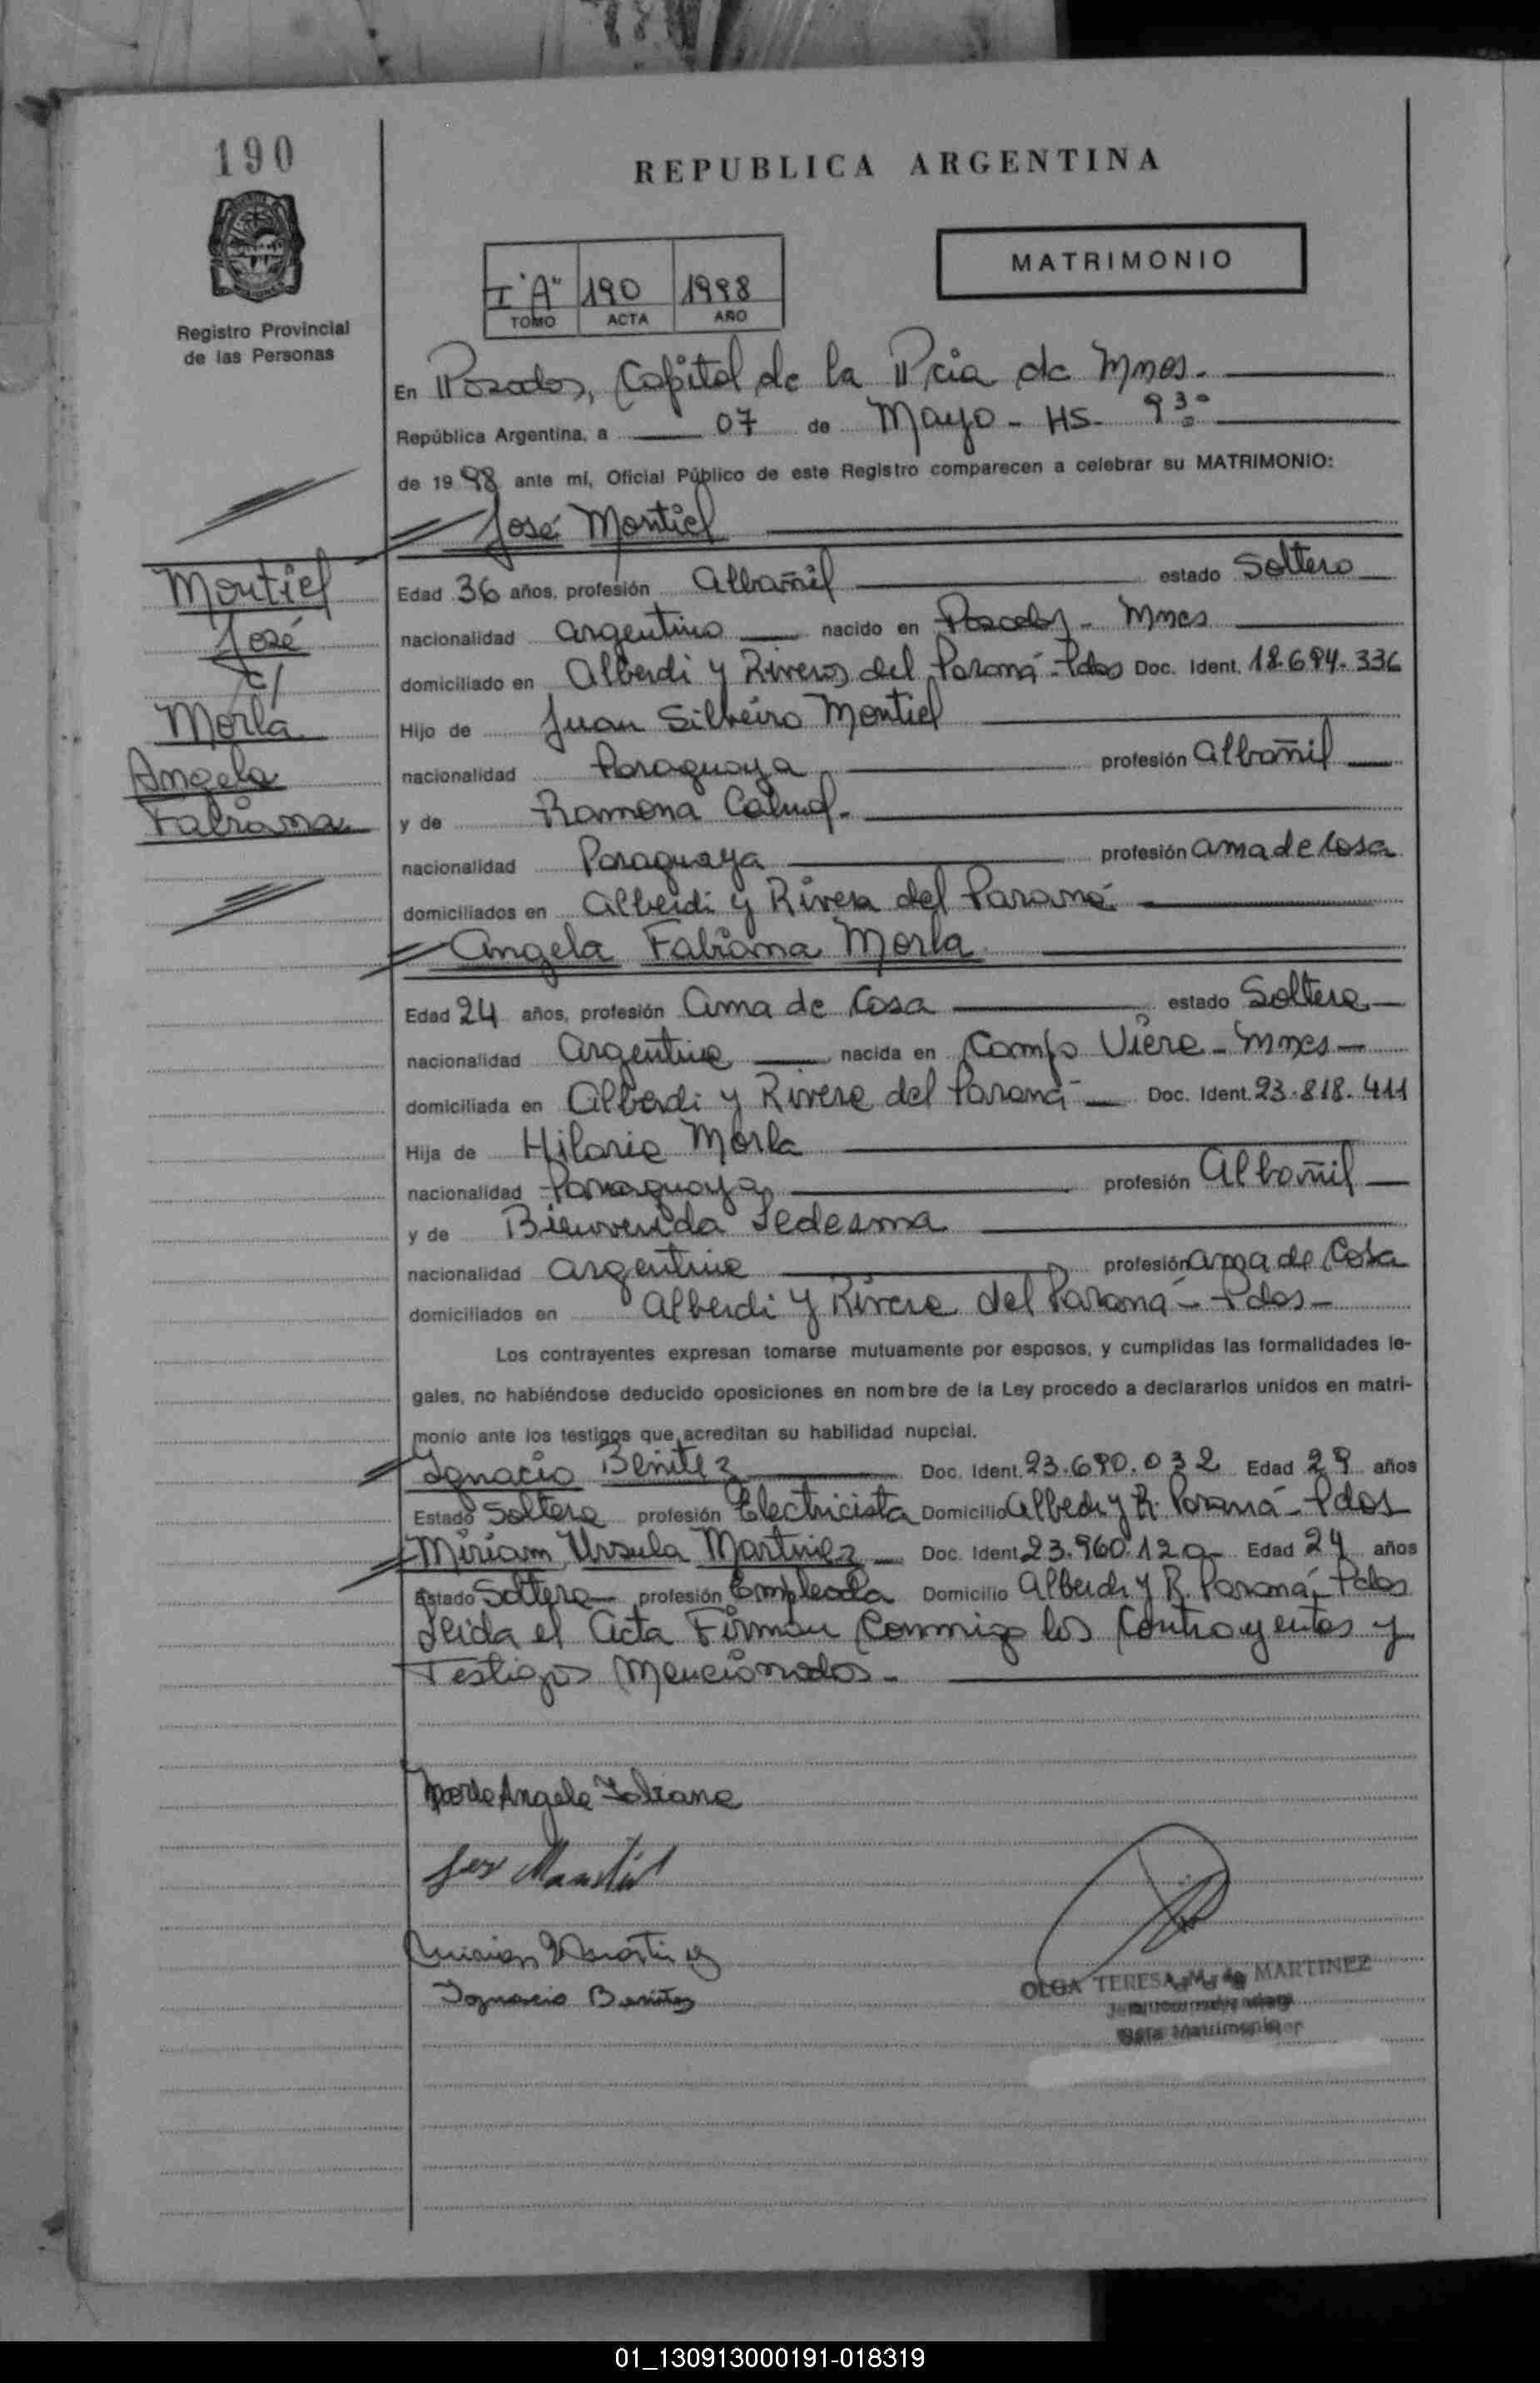 190
REPUBLICA ARGENTINA
MATRIMONIO
I "A" 190 1998
TOMO ACTA AÑO
Registro Provincial
de las Personas
En Posadas, Capital de la Pcia de Mnes.
República Argentina, a 07 de Mayo - HS - 9 30
de 1998 ante mí, Oficial Público de este Registro comparecen a celebrar su MATRIMONIO:
José Montiel
Montiel
José
c/
Morla
Angela
Fabiana
Edad 36 años, profesión Albañil estado Soltero
nacionalidad argentino nacido en Posadas - Mnes
domiciliado en Alberdi y Riveros del Paraná - Pdas Doc. Ident. 18.694.336
Hijo de Juan Silveiro Montiel
nacionalidad Paraguaya profesión Albañil
y de Ramona
nacionalidad Paraguaya profesión ama de Casa
domiciliados en Alberdi y Rivera del Paraná
Angela Fabiana Morla
Edad 24 años, profesión Ama de Casa estado Soltera
nacionalidad Argentina nacida en Campo Viera - Mnes
domiciliada en Alberdi y Rivera del Paraná - Doc. Ident. 23.818.411
Hija de Hilario Morla
nacionalidad Paraguaya profesión Albañil
y de Bienvenida Ledesma
nacionalidad argentina profesión ama de Casa
domiciliados en Alberdi y Rivera del Paraná - Pdas -
Los contrayentes expresan tomarse mutuamente por esposos, y cumplidas las formalidades le-
gales, no habiéndose deducido oposiciones en nombre de la Ley procedo a declararlos unidos en matri-
monio ante los testigos que acreditan su habilidad nupcial.
Ignacio Benitez Doc. Ident. 23.690.032 Edad 29 años
Estado Soltero profesión Electricista Domicilio Alberdi y R. Paraná - Pdas
Miriam Ursula Martinez Doc. Ident. 23.960.120 Edad 24 años
Estado Soltera profesión Empleada Domicilio Alberdi y R. Paraná - Pdas
Leida el Acta Firman Conmigo los Contrayentes y
Testigos Mencionados.
Morla Angela Fabiana
José Montiel
Miriam Martinez
Ignacio Benitez
OLGA TERESA M. de MARTINEZ
01_130913000191-018319